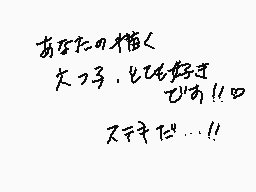 あなたの描く
犬っ子、とても好き
です!!♡
ステキだ…!!